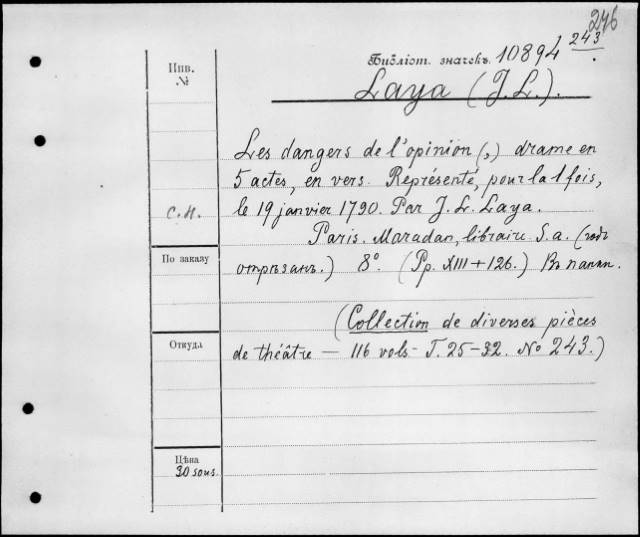 246
Библіот. значекъ 10894 243.
Инв.
№
Laya (J. L.).
Les dangers de l'opinion (,) drame en
5 actes, en vers. Représenté, pour la 1 fois,
С.Н.
le 19 janvier 1790. Par J. L. Laya.
Paris. Maradan, libraire S. a. (годъ
По заказу
отрѣзанъ.) 8º. (Pp. XIII + 126.) Въ папк.
(Collection de diverses pièces
Откуда
de théâtre — 116 vols. T. 25-32. No 243.)
Цѣна
30 sous.